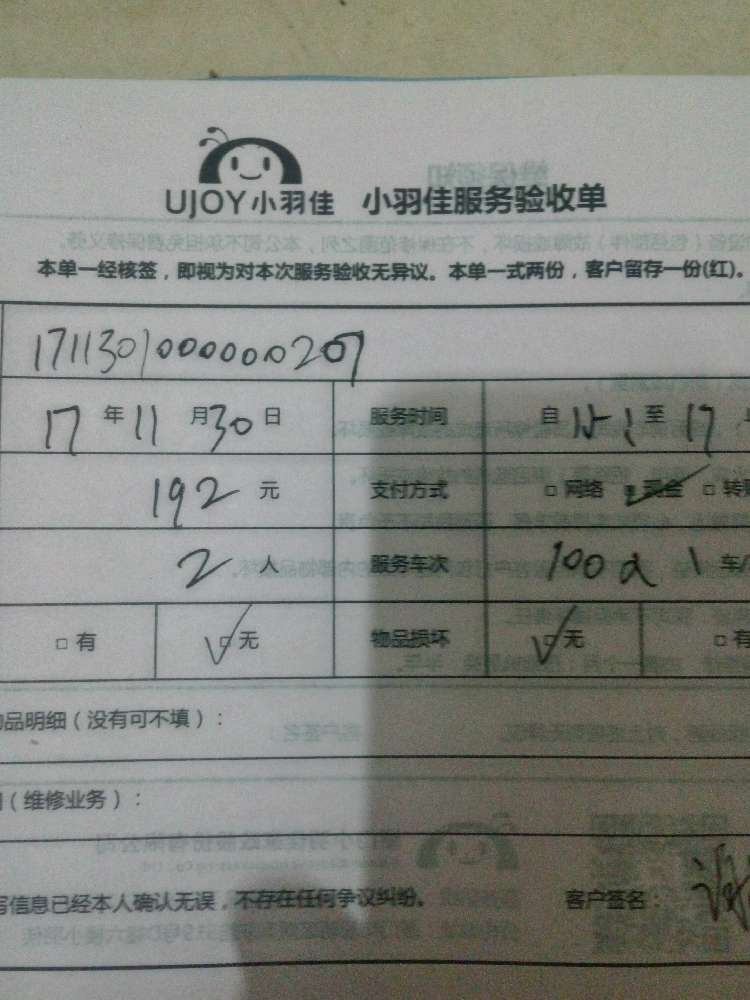 UJOY小羽佳 小羽佳服务验收单
本单一经核签，即视为对本次服务验收无异议。本单一式两份，客户留存一份(红)。
171130100000000207
17 年 11 月 30 日 服务时间 自 至 17
192 元 支付方式 □ 网络 现金 □ 转账
2 人 服务车次 车/
□ 有 □ 无 物品损坏 □ 无 □ 有
品明细（没有可不填）：
（维修业务）：
写信息已经本人确认无误，不存在任何争议纠纷。 客户签名：